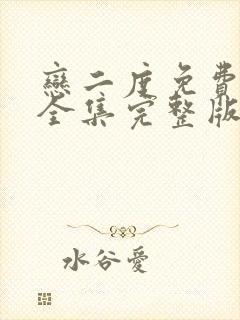 戀二度免費
全集完整版
水谷愛